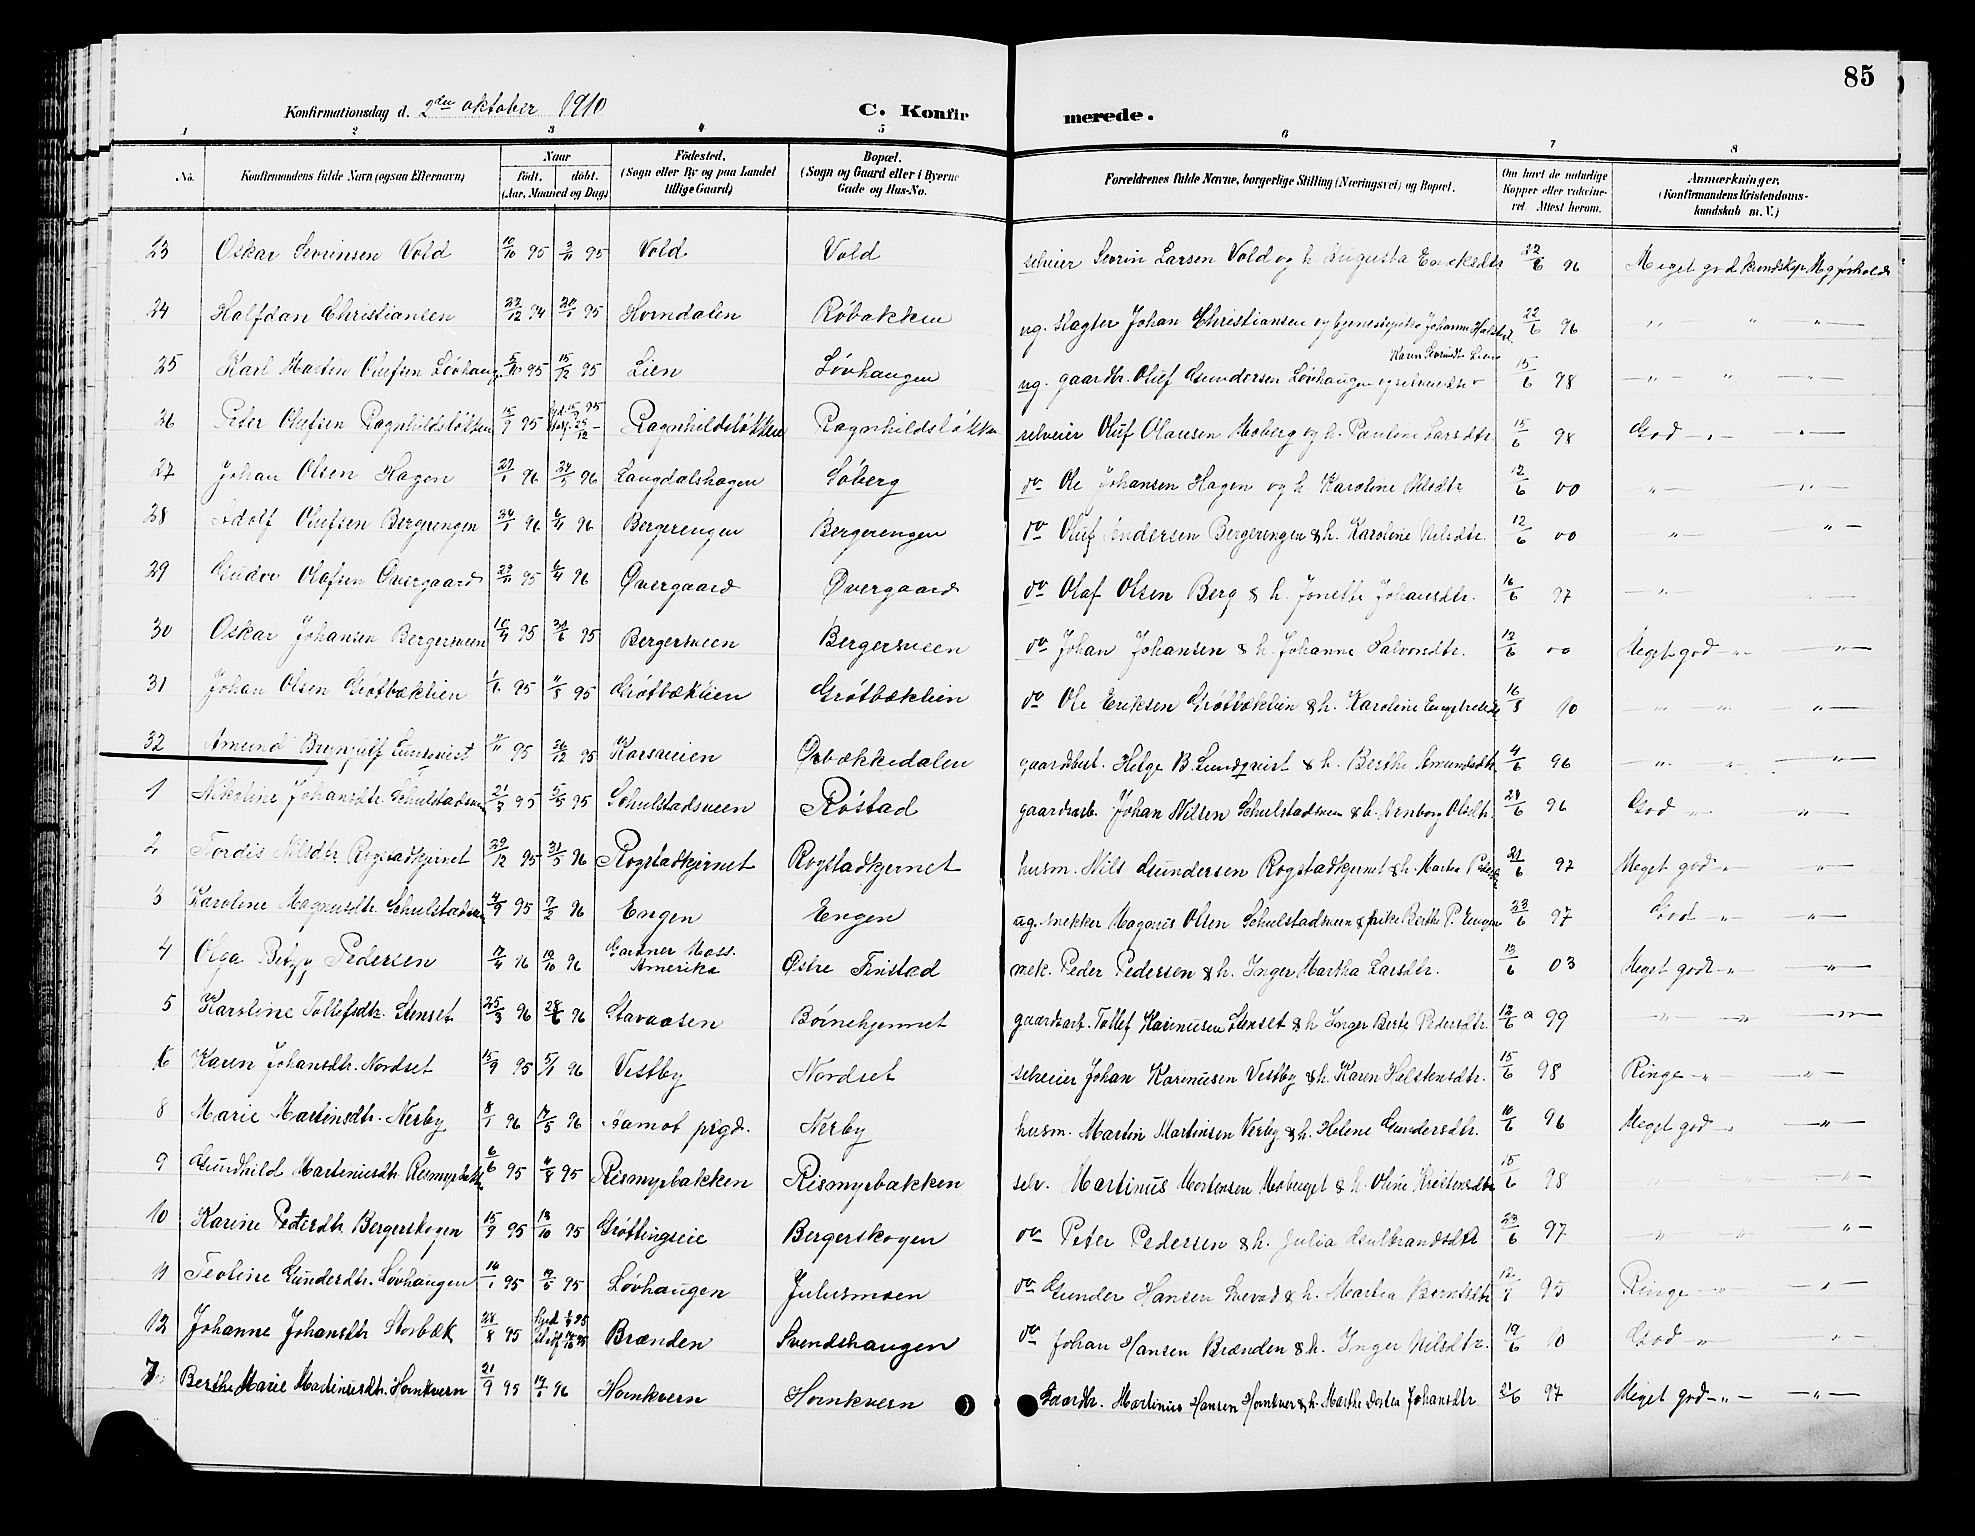 85
Konfirmationsdag d. 2den oktober 1910 C. Konfirmerede.
1 2 3 4 5 6 7 8
No. Konfirmandens fulde Navn (ogsaa Efternavn) Naar født. døbt. (Aar, Maaned og Dag) Fødested. (Sogn eller By og paa Landet tillige Gaard) Bopæl. (Sogn og Gaard eller i Byerne Gade og Hus-No. Forældrenes fulde Navne, borgerlige Stilling (Næringsvei) og Bopæl. Om havt de naturlige Kopper eller vakcineret Attest herom. Anmærkninger. (Konfirmandens Kristendomskundskab m. V.)
23 Oskar Severinsen Vold 10/10 95 3/11 95 Vold Vold selveier Severin Larsen Vold og h. Augusta 22/6 96 Meget god kundskap Meg forhold
24 Halfdan Christiansen 22/12 94 Horndalen Røbakken ug. slagter Johan Christiansen og tjenestepike Johanne 22/6 96 " " "
25 Karl Martin Olufsen Løvhaug 5/10 95 15/12 95 Lien Løvhaugen ug. gaardbr. Oluf Gundersen Løvhaugen og 15/6 98 " " "
26 Peter Olufsen Ragnhildsløkken 15/9 95 Ragnhildsløkken Ragnhildsløkken selveier Oluf Olausen Moberg og h. Pauline Larsdtr 15/6 98 God " "
27 Johan Olsen Hagen 27/1 96 24/5 96 Langdalshagen Søberg do Ole Johansen Hagen og h. Karoline Nilsdtr 12/6 00 " "
28 Adolf Olufsen Bergerengen 24/1 96 6/4 96 Bergerengen Bergerengen do Oluf Andersen Bergerengen & h. Karoline Nilsdtr. 12/6 00 " "
29 Olafsen Øvergaard 29/11 95 6/4 96 Øvergaard Øvergaard do Olaf Olsen Berg & h. Jonette Johansdtr. 16/6 97 " "
30 Oskar Johansen Bergersveen 95 95 Bergersveen Bergersveen do Johan Johansen & h. Johanne Halvorsdtr. 12/6 00 Meget god " "
31 Johan Olsen Grøtbæklien 95 95 Grøtbæklien Grøtbæklien do Ole Eriksen Grøtbæklien & h. Karoline 16/8 10 " " "
32 Amund Brynjulf Lundqvist 95 26/12 95 Korsveien Øvbækkedalen Helge B. Lundqvist & h. Berthe Amundsdtr 4/6 96 " " "
1 Nikoline Johansdtr. Schulstadsveen 21/3 95 5/5 95 Schulstadsveen Røstad gaardsarb. Johan Nilsen Schulstadsveen & h. Olsdtr. 24/6 96 God " "
2 Tordis Nilsdtr Rogstadkjernet 29/12 95 31/5 96 Rogstadkjernet Rogstadkjernet husm. Nils Gundersen Rogstadkjernet & h. Martea 21/6 97 Meget god " "
3 Karoline Magnusdtr. Schulstadsveen 4/9 95 9/2 96 Engen Engen ug. snekker Magnus Olsen Schulstadsveen & pike Berthe P. Engen 23/6 97 God " "
4 Olga Betzy Pedersen 17/4 96 96 Gardner Mass. Amerika Østre Finstad snek. Peder Pedersen & h. Inger Martha Larsdtr. 13/6 03 Meget god " "
5 Karoline Tollefsdtr. Stenset 25/3 96 28/6 96 Stavaasen Børnehjemmet gaardsarb. Tollef Karinusen Stenset & h. Inger Berte Pedersdtr. 12/6 a 99 " " "
6 Karen Johansdtr. Nordset 15/9 95 5/1 96 Vestby Nordset selveier Johan Karenusen Vestby & h. Karen Halstensdtr. 15/6 98 Ringe " "
8 Marie Martinsdtr. Nerby 8/1 96 17/5 96 Aamot prgd. Nerby husm. Martin Martinsen Nerby & h. Helene Gundersdtr. 10/6 96 Meget god " "
9 Gundhild Martinusdtr. Rismyrbakken 6/6 95 4/8 95 Rismyrbakken Rismyrbakken selv. Martinus Mortensen & h. Oline Kristensdtr 15/6 98 " "
10 Karine Pedersdtr. Bergerskogen 15/9 95 13/10 95 Grøttingseie Bergerskogen do Peter Pedersen & h. Julia Gulbrandsdtr 23/6 97 " " "
11 Teoline Gunderdtr. Løvhaugen 14/1 95 95 Løvhaugen Julusmoen do Gunder Hansen & h. Martea Berntsdtr 95 Ringe " "
12 Johanne Johansdtr Storbæk 28/8 95 Brænden Svendshaugen do Johan Hansen Brænden & h. Inger Nilsdtr. 19/6 10 God " "
7 Berthe Marie Martinusdtr. Hornkvern 21/9 95 96 Hornkvern Hornkvern Gaardbr. Martinus Hansen Hornkvern & h. Marthe Dortea Johansdtr 21/6 97 Meget god " "